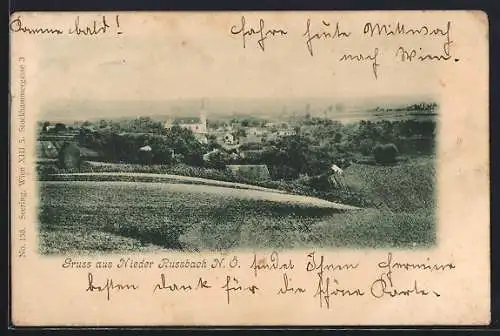 Komme bald!
fahre heute Mittwoch
nach Wien.
No. 158. Seering, Wien XIII 5. Stockhammergasse 3
Gruss aus Nieder Russbach N. Ö. sendet Ihnen Hermine
besten dank für die schöne Karte.